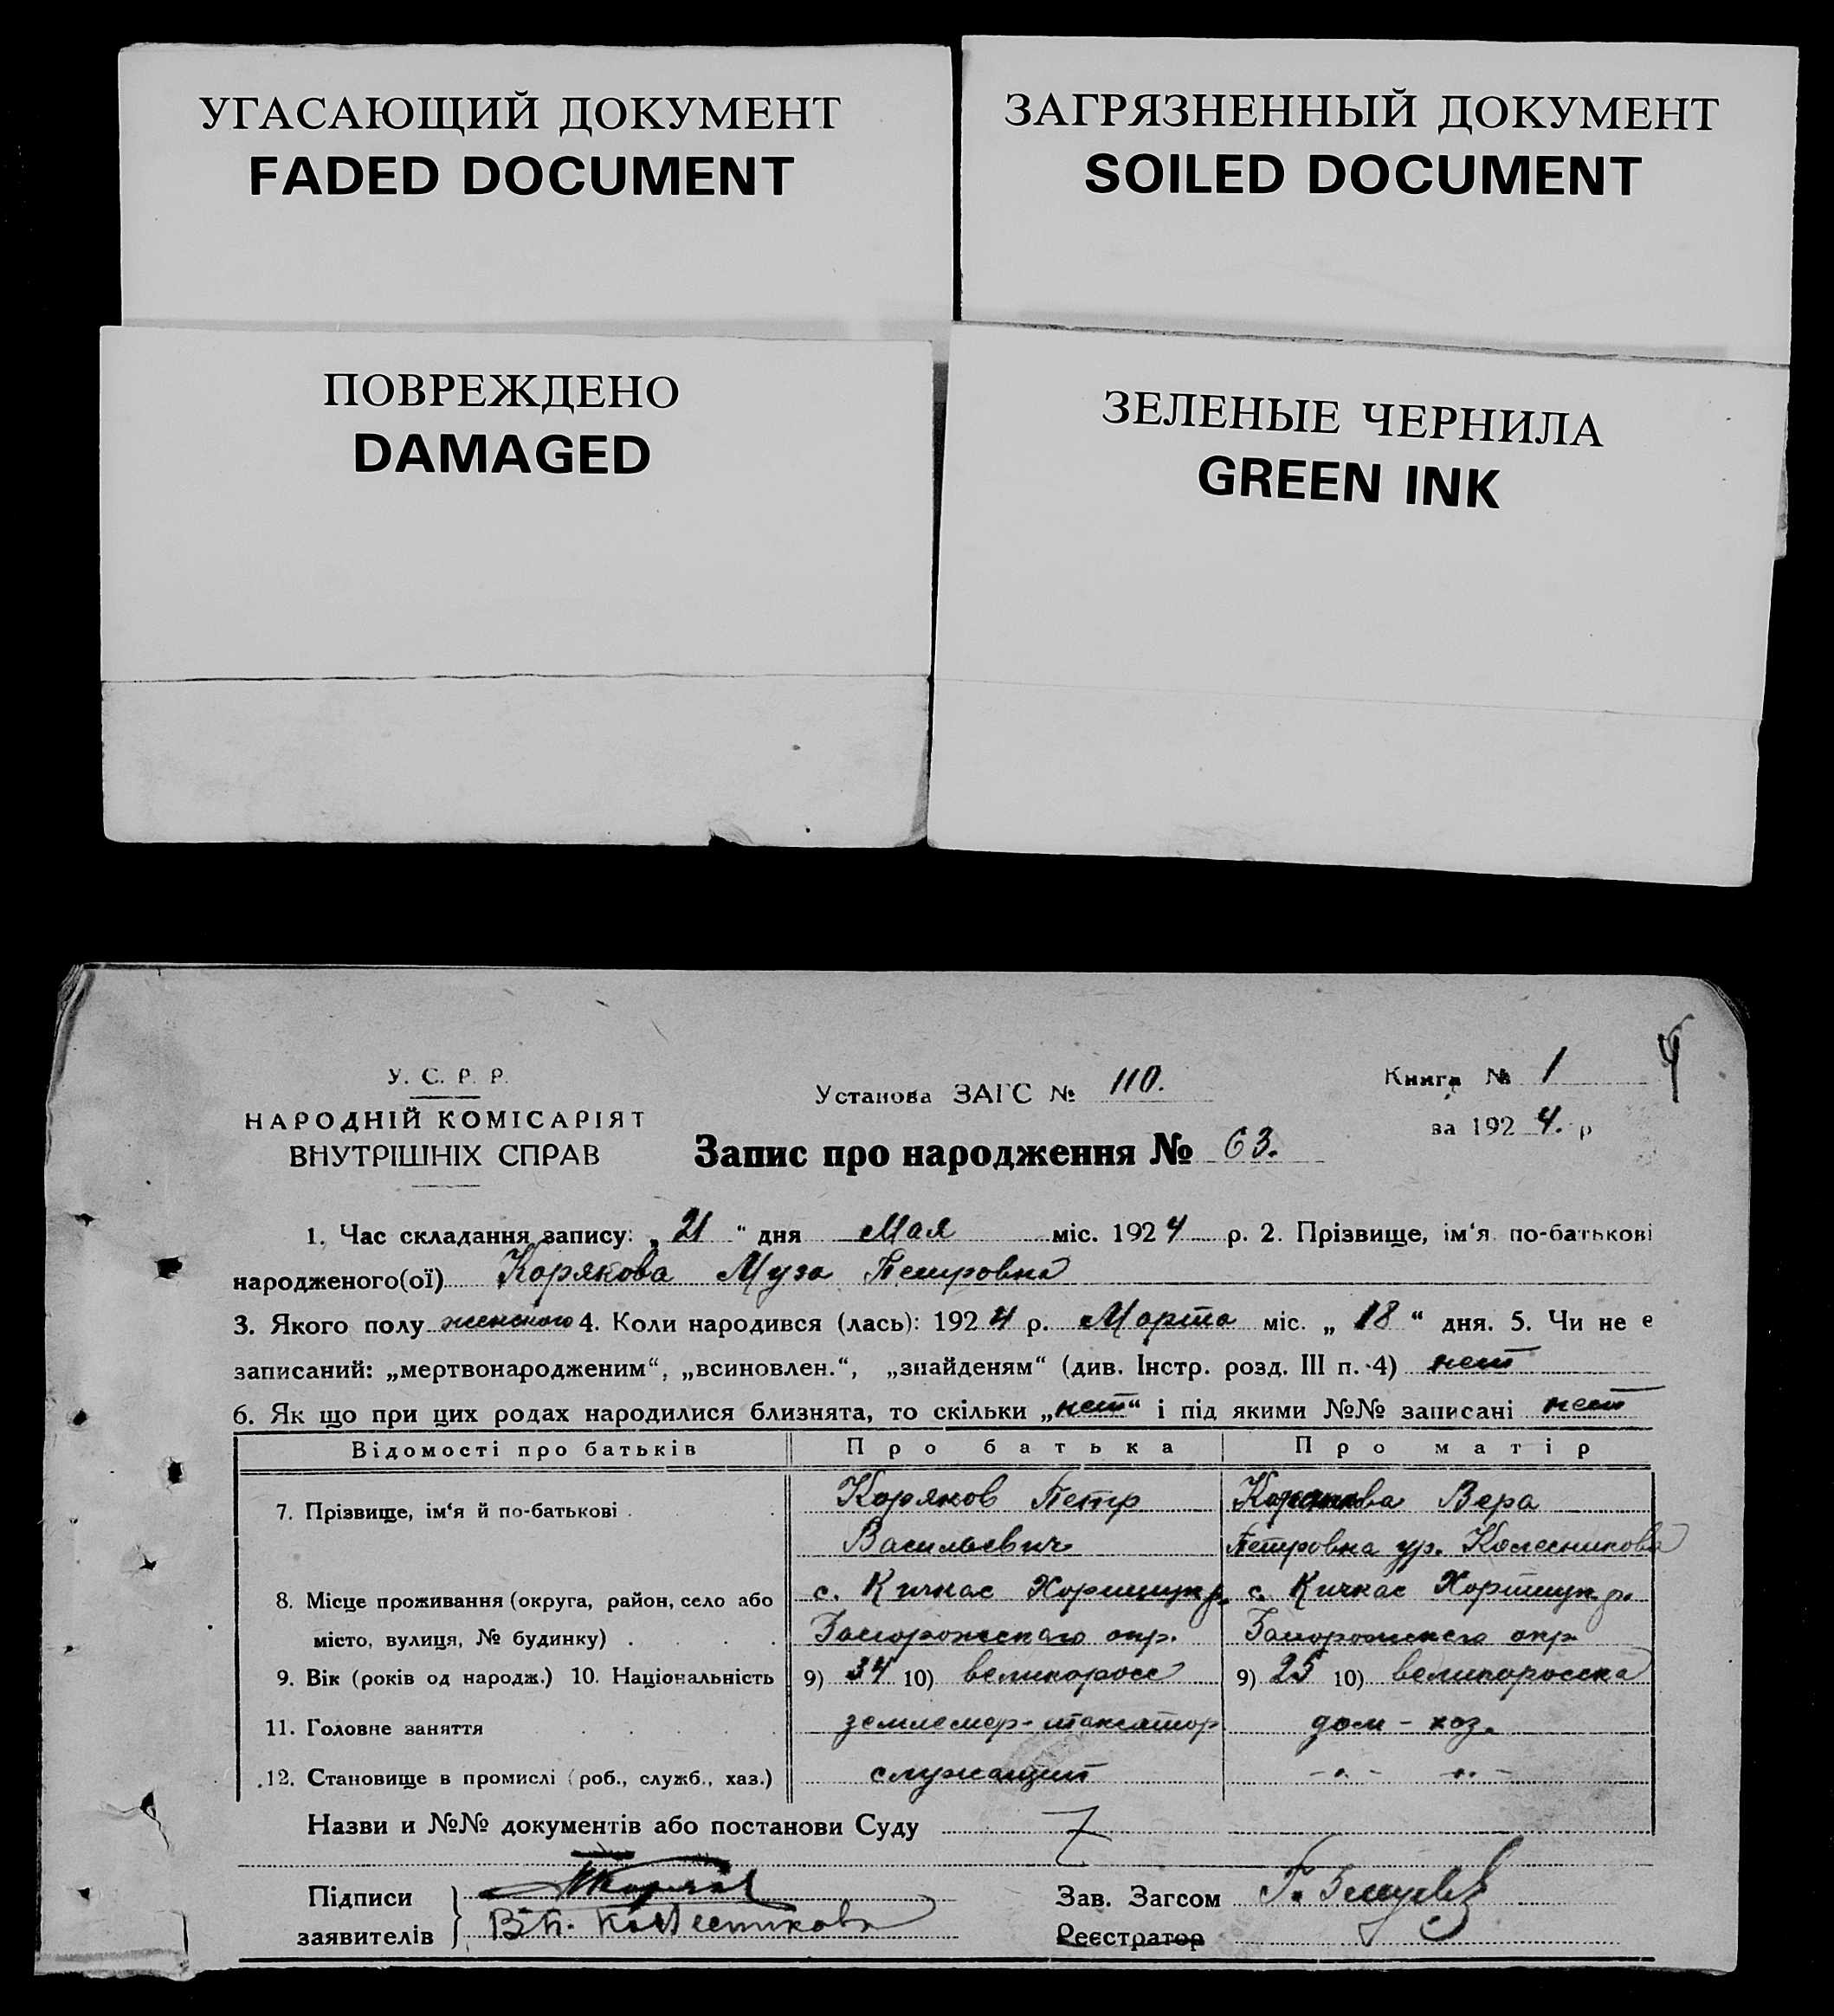 УГАСАЮЩИЙ ДОКУМЕНТ
FADED DOCUMENT
ЗАГРЯЗНЕННЫЙ ДОКУМЕНТ
SOILED DOCUMENT
ПОВРЕЖДЕНО
DAMAGED
ЗЕЛЕНЫЕ ЧЕРНИЛА
GREEN INK
У. С. Р. Р.
НАРОДНІЙ КОМІСАРІЯТ
ВНУТРІШНІХ СПРАВ
Установа ЗАГС № 110.
Запис про народження № 63.
Книга № 1
за 1924. р
1. Час складання запису: „21" дня Мая міс. 1924 р. 2. Прізвище, ім'я по-батькові
народженого(ої) Корякова Муза Петровна
3. Якого полу женского 4. Коли народився (лась): 1924 р. Марта міс. „18" дня. 5. Чи не е
записаний: „мертвонародженим", „всиновлен.", „знайденям" (див. Інстр. розд. III п. 4) нет
6. Як що при цих родах народилися близнята, то скільки „нет" і під якими №№ записані нет
Відомості про батьків Про батька Про матір
7. Прізвище, ім'я й по-батькові . Коряков Петр Корякова Вера
Васильевич Петровна ур. Колесникова
8. Місце проживання (округа, район, село або с. Кичкас Хортицк р. с. Кичкас Хортицк р.
місто, вулиця, № будинку) . Запорожского окр. Запорожского окр
9. Вік (років од народж.) 10. Національність 9) 34 10) великоросс 9) 25 10) великоросска
11. Головне заняття землемер-таксатор дом-хоз.
12. Становище в промислі (роб., служб., хаз.) служащий -"- -"-
Назви и №№ документів або постанови Суду
Підписи
заявителів
В.П. Колесникова
Зав. Загсом
Реєстратор